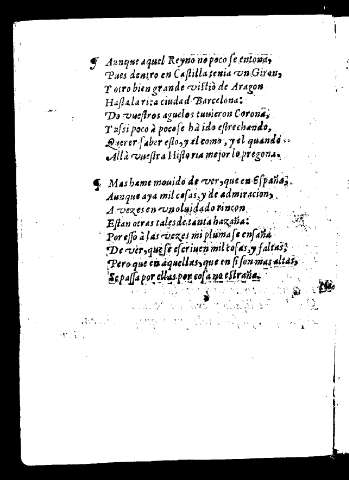 ¶ Aunque aquel Reyno no poco se entona,
Pues dentro en Castilla tenia vn Giron,
Y otro bien grande vistiò de Aragon
Hasta la rica ciudad Barcelona:
Do vuestros aguelos tuuieron Corona,
Y assi poco à poco se hà ido estrechando,
Querer saber esto, y el como, y el quando
Allà vuestra Historia mejor lo pregona.
¶ Mas hame mouido de ver, que en España,
Aunque aya mil cosas, y de admiracion,
A vezes en vn oluidado rincon
Estan otras tales de tanta hazaña:
Por esso à las vezes mi pluma se ensaña
De ver, que se escriuen mil cosas, y faltas;
Pero que en aquellas, que en si son mas altas,
Se passa por ellas por cosa no estraña.